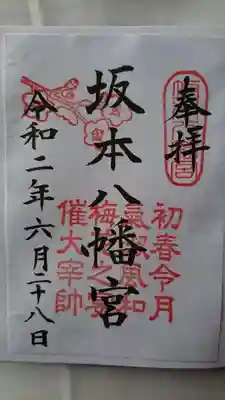 奉拝
坂本八幡宮
令和二年六月二十八日
初春令月
氣淑風和
梅花之宴
催大宰帥